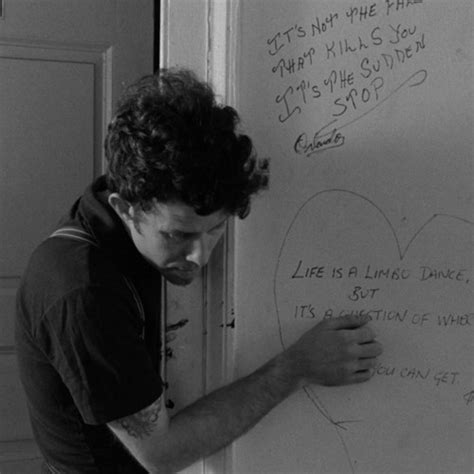 IT'S NOT THE FAL
THAT KILLS YOU
IT'S THE SUDDEN
STOP
LIFE IS A LIMBO DANCE,
BUT
IT'S A QUESTION OF WHE
YOU CAN GET.